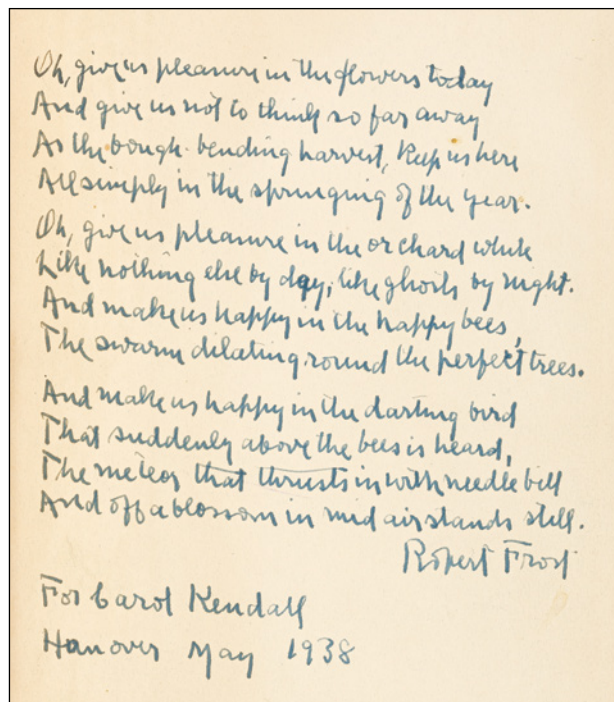 Oh, give us pleasure in the flowers today
And give us not to think so far away
As the bough-bending harvest, keep us here
All simply in the springing of the year.
Oh, give us pleasure in the orchard white
Like nothing else by day, like ghosts by night.
And make us happy in the happy bees,
The swarm dilating round the perfect trees.
And make us happy in the darting bird
That suddenly above the bees is heard,
The meteor that thrusts in with needle bill
And off a blossom in mid air stands still.
Robert Frost
For Carol Kendall
Hanover May 1938